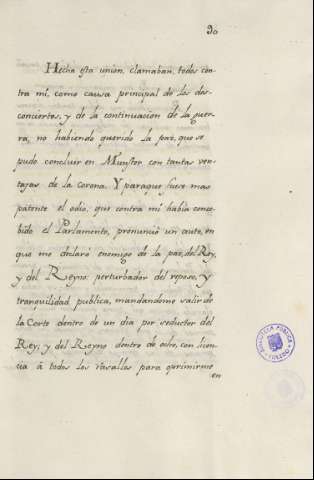 90
Hecha esta union, clamaban, todos con-
tra mi, como causa principal de los des-
conciertos, y de la continuacion de la guer-
ra, no habiendo querido la paz, que se
pudo concluir en Munster con tantas ven-
tajas de la corona. Y paraque fuese mas
patente el odio, que contra mi habia conce-
bido el Parlamento, pronunció un auto, en
que me declaró enemigo de la paz, del Rey,
y del Reyno: perturbador del reposo, y
tranquilidad publica, mandandome salir de
la Corte dentro de un dia por seductor del
Rey; y del Reyno dentro de ocho, con licen-
cia á todos los vasallos para oprimirme
en
BIBLIOTECA PÚBLICA
TOLEDO